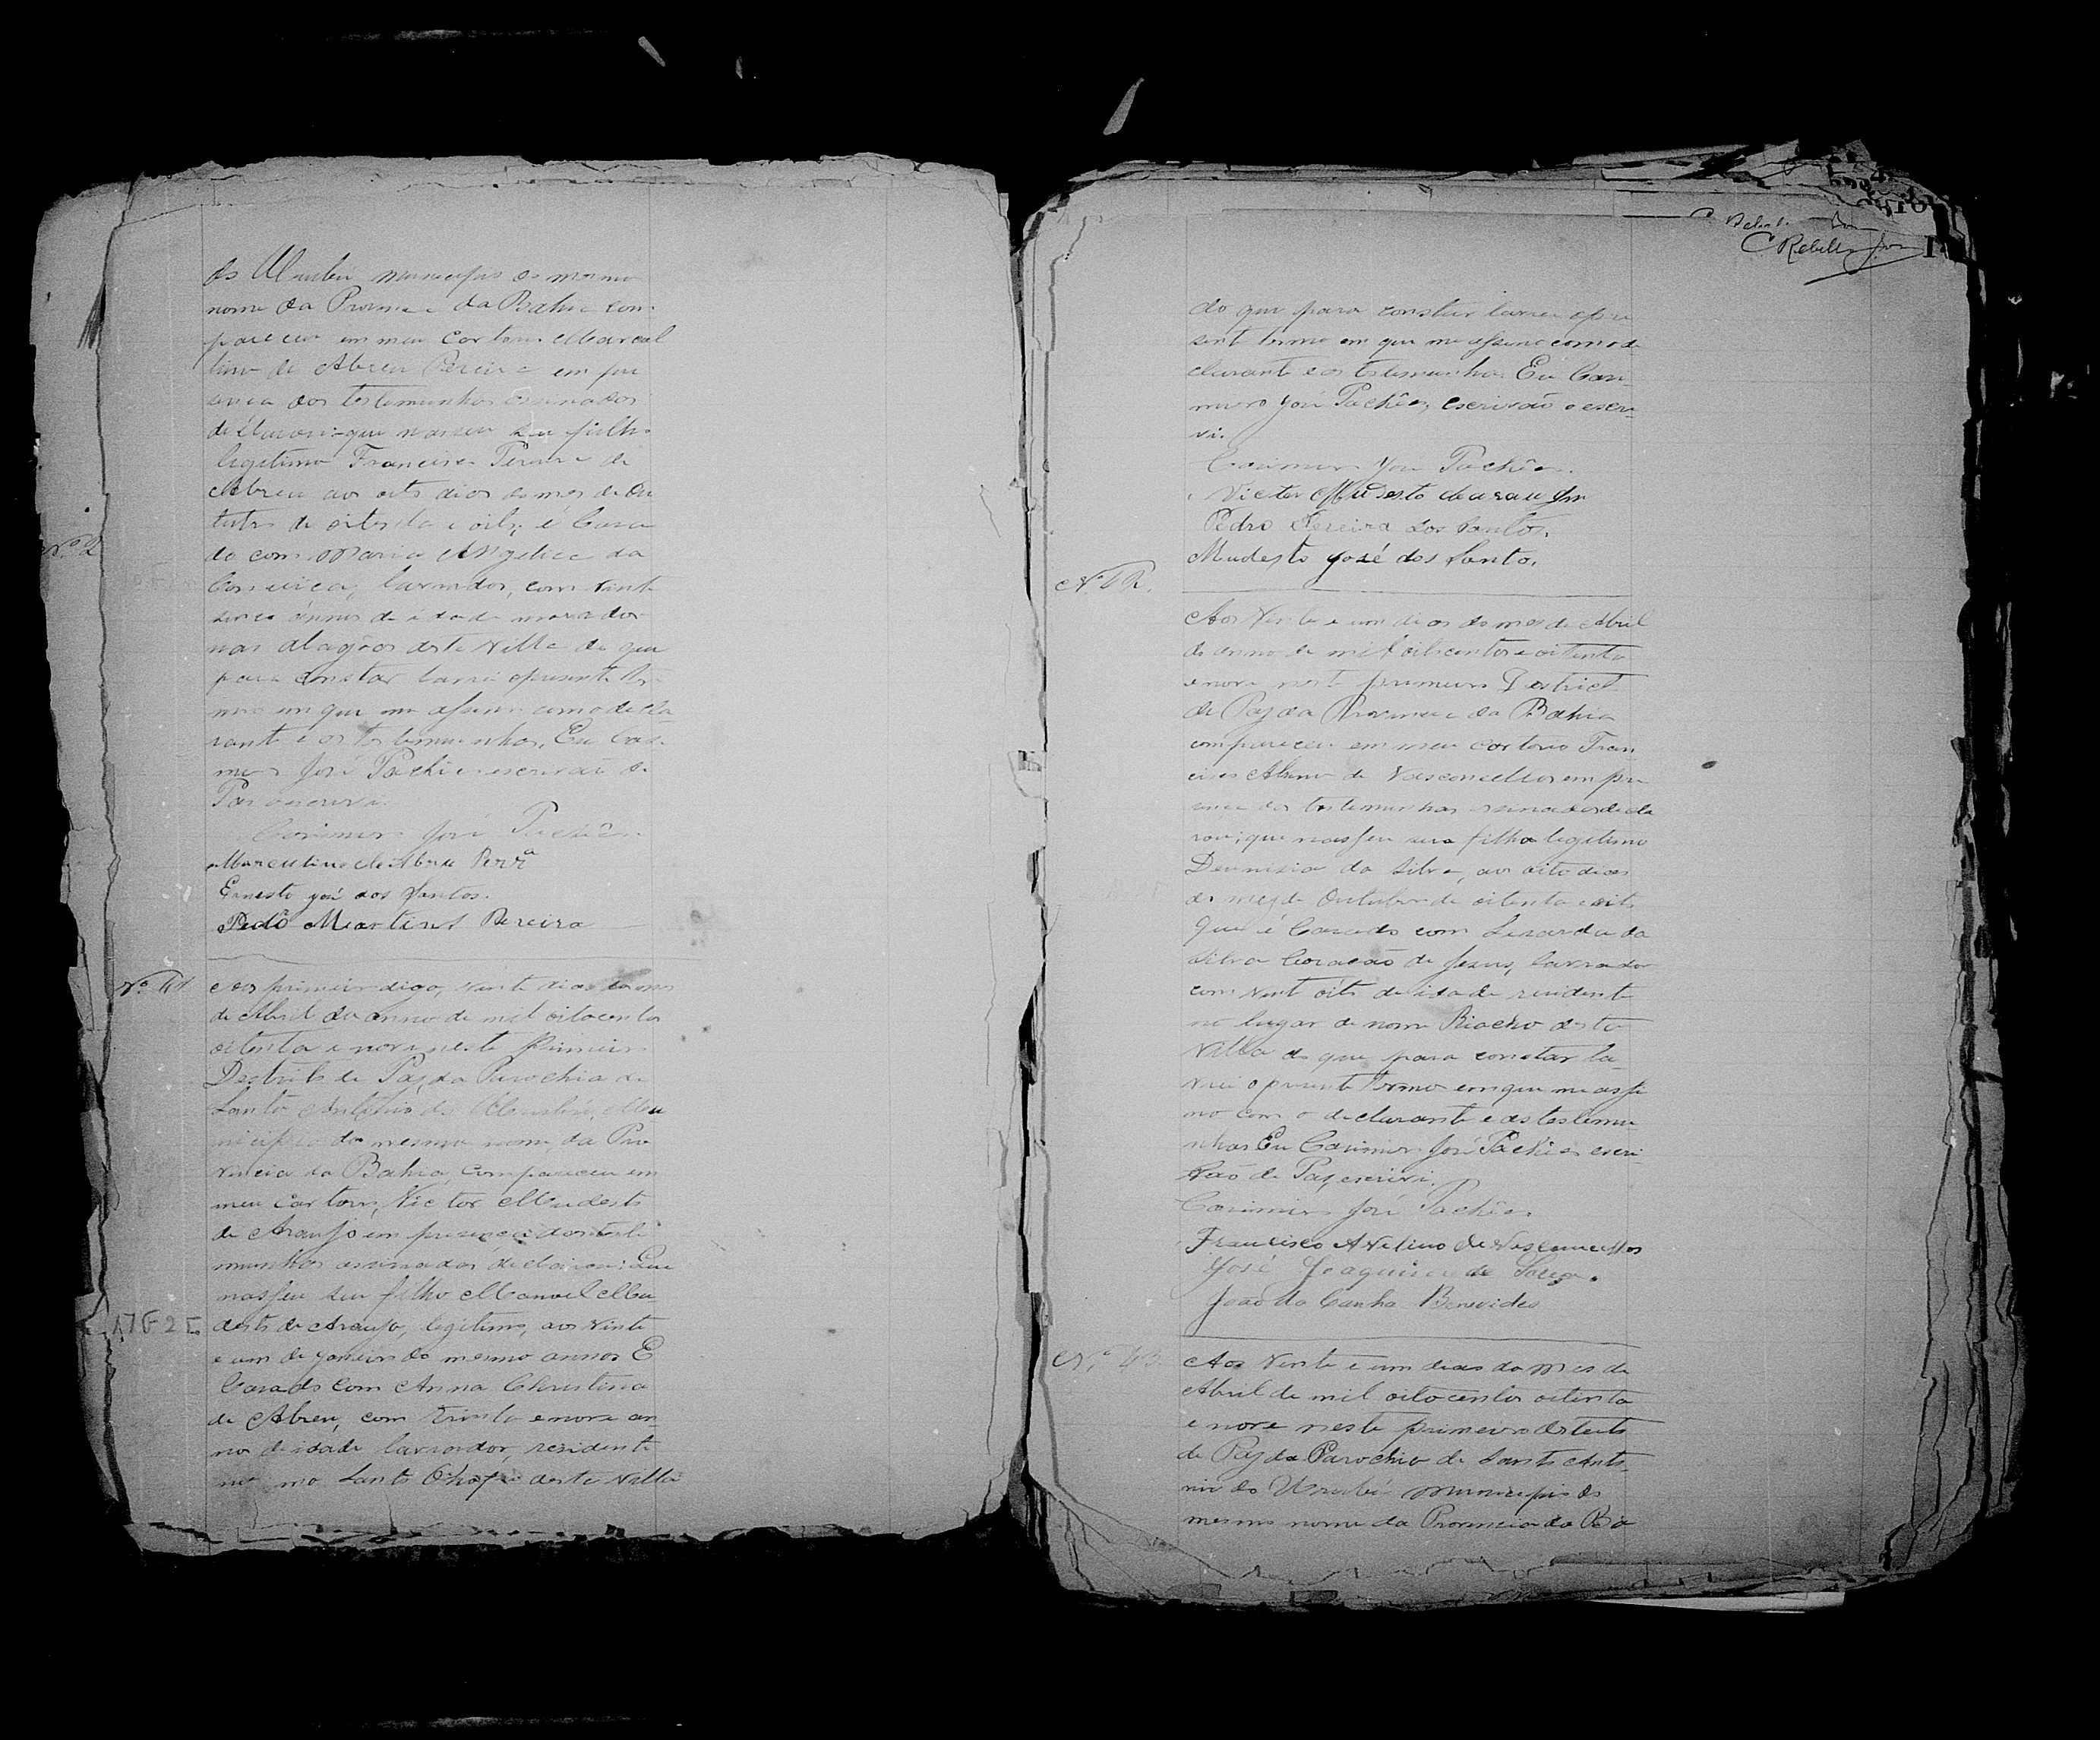 do Urubu municipio do mesmo
nome da Provincia da Bahia com-
pareceu em meu Cartorio Marcol
lino de Abreu Pereira em pre
sença dos testemunhas assinados
declarou: que nasceu seu filho
legitimo Francisco Pereira de
Abreu aos oito dias do mes de Ou
tubro de oitenta e oito; é Casa
do com Maria Angelica da
lavrador, com vinte
annos de idade morador
nas Alagôas desta Villa do que
para constar lavrei o presente ter
mo em que me assino com o decla
rante e os testemunhas. Eu Casi
miro José Pachêco escrivão de
Pas o escrevi.
Casimiro José Pachêco
Marculino de Abreu Perrª
Ernesto José dos Santos.
Pedro Martins Pereira
Nº 2
Nº 41
Aos primeiro digo, vinte dias do mes
de Abril do anno de mil oitocentos
oitenta e nove neste Primeiro
Destrito de Paz, da Parochia de
Santo Antonio do Urubú, Mu
nicipio do mesmo nome, da Pro
vincia da Bahia, compareceu em
meu Cartorio, Victor Mudesto
de Araujo em presença dos teste
munhos assinados declarou: Que
nasseu seu filho Manoel Mu
desto de Araujo, legitimo, aos vinte
e um de Janeiro do mesmo annos E
Casado com Anna Christina
de Abreu, com trinta e nove an
nos de idade lavrador, residente
no Santo desta Villa
C Rebello
do que para constar lavrei o pre
sente termo em que me assino com o de
clarante e os testemunhos. Eu Casi
miro José Pachêco, escrivão o escre
vi.
Casimiro José Pachêco.
Victor Mudesto de araujo
Pedro Pereira dos Santos.
Mudesto José dos Santo.
Nº 42.
Aos Vinte e um dias do mes de Abril
do anno de mil oitocentos e oitenta
e nove neste primeiro Destrict
de Paz da Provincia da Bahia
compareceu em meu cartorio Fran
cisco Alino de Vasconcellos em pre
sença dos testemunhas assinados decla
rou; que nasseu seu filho legitimo
da Silva, aos oito dias
do mez de Outubro de oitenta e oito
Que é Casado com Lisarda da
Silva Coração de Jesus, lavrador
com vint oito de idade residente
no lugar de nome Riacho desta
Villa do que para constar la
vrei o presente termo em que me assi
no com o declarante e as testemu
nhas Eu Casimiro José Pachêco escri
vão de Paz, escrivi.
Casimiro José Pachêco.
Francisco Avelino de Vasconcellos
José Joaquim de Souza.
João da Cunha Benevides
Nº 43.
Aos Vinte e um dias do mes de
Abril de mil oitocentos oitenta
e nove neste primeiro destrito
de Paz da Parochia de Santo Anto
nio do Urubú municipio do
mesmo nome da Provincia da Ba